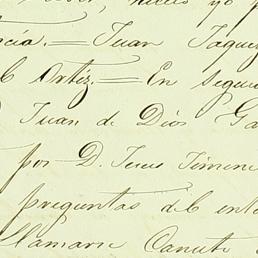 ncia. = Juan Jaque
Ortiz. = En segui
Juan de Dios Ga
por D. Jesus Jimene
preguntas del ente
llamarse Canuto